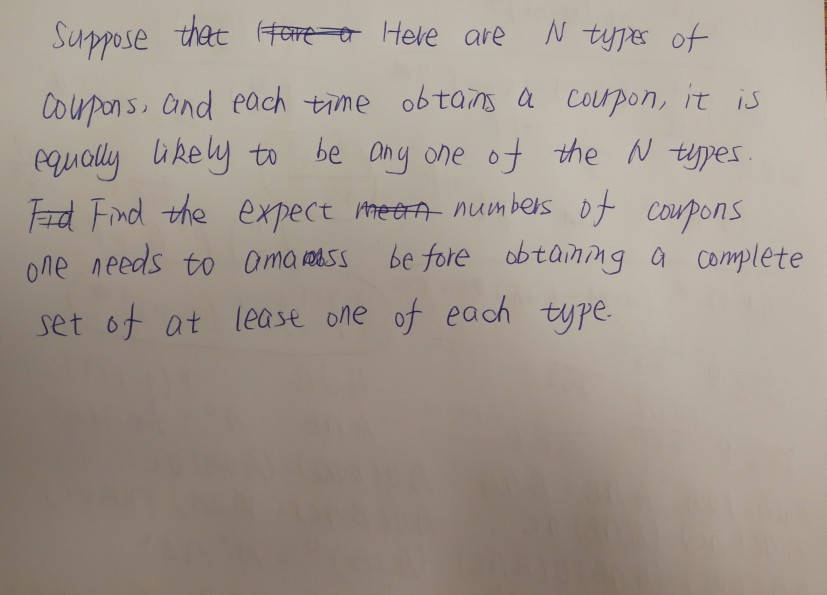 Suppose that Have a Here are N types of
coupons, and each time obtains a coupon, it is
equally likely to be any one of the N types.
Fid Find the expect mean numbers of coupons
one needs to amass before obtaining a complete
set of at lease one of each type.